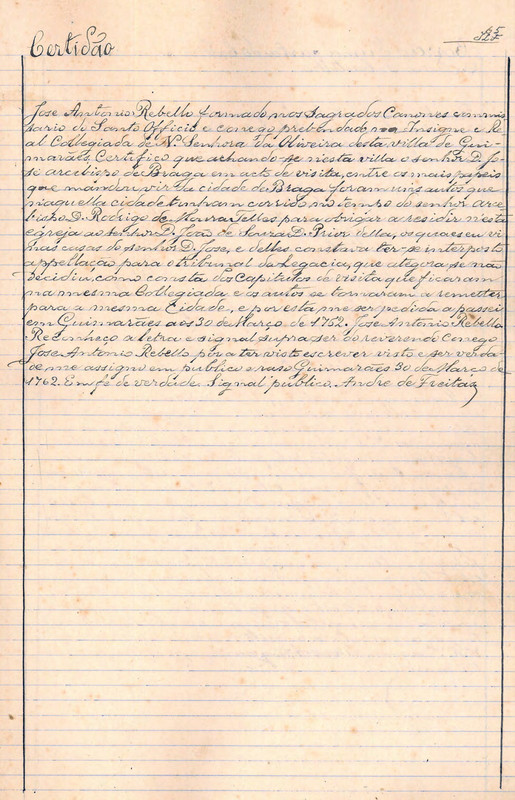 Certidão
José Antonio Rebello formado nos Sagrados Canones commis
sario do Santo Officio e conego prebendado na Insigne e Re
al Collegiada de N. Senhora da Oliveira desta villa de Gui-
marães, Certifico que achando-se nesta villa o senhor D. Jo
sé arcebispo de Braga em acto de visita, entre os mais papeis
que mandou vir da cidade de Braga foram uns autos que
naquella cidade tinham corrido no tempo do senhor arce
bispo D. Rodrigo de Moura Telles para obrigar a residir nesta
egreja ao senhor D. João de Souza D. Prior della, os quaes eu vi
nas casas do senhor D. José, e delles constava ter-se interposto
appellação para o tribunal da Legacia, que athe gora se não
decidiu, como consta dos Capitulos de visita que ficaram
na mesma Collegiada e os autos se tornaram a remetter
para a mesma Cidade, e por esta me ser pedida a passei
em Guimarães aos 30 de Março de 1752. José Antonio Rebello
Reconheço a letra e signal supra ser do reverendo Conego
José Antonio Rebello, por a ter visto escrever visto e ser verda
de me assigno em publico e raso Guimarães 30 de Março de
1762. Em fé de verdade. Signal publico. Andre de Freitas